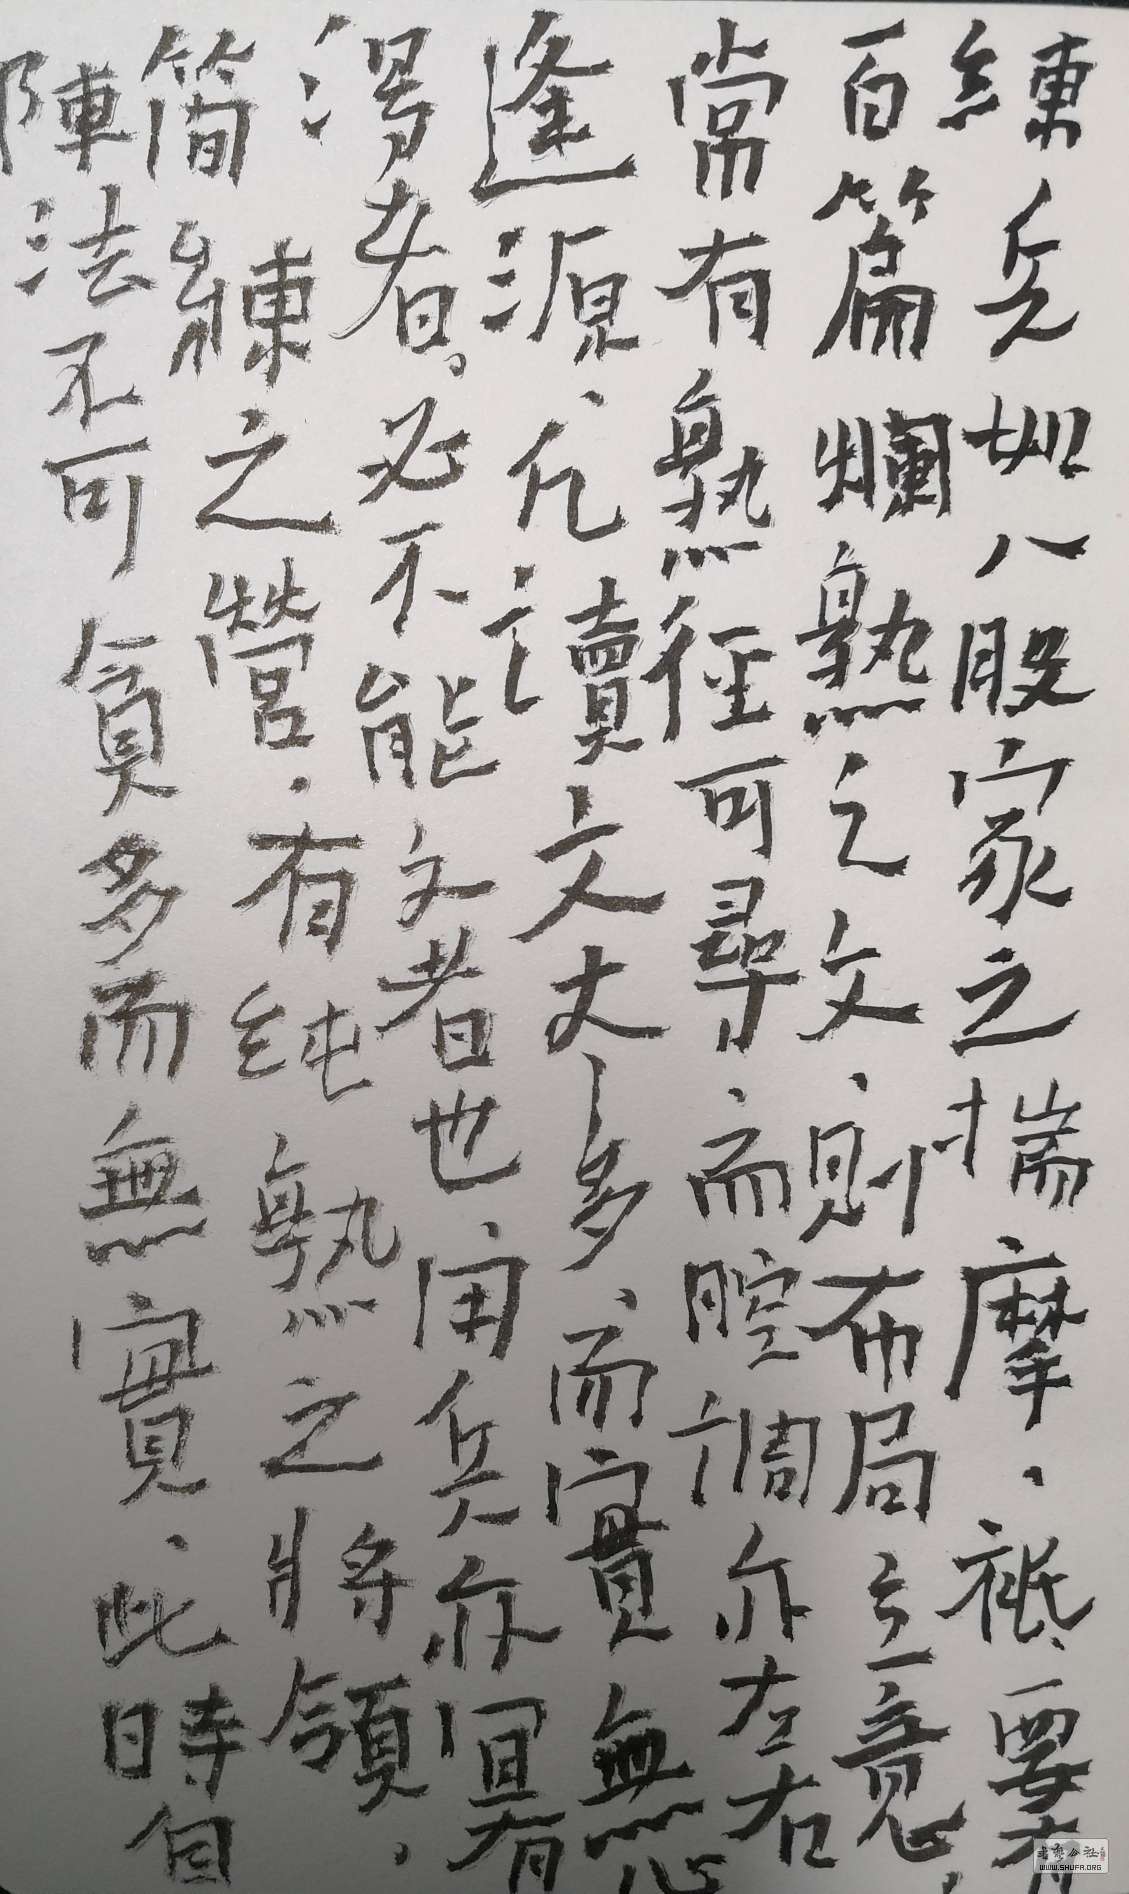 練兵如八股家之揣摩、祇要有
百篇爛熟之文、則布局立意、
常有熟徑可尋、而腔調亦左右
逢源、凡讀文太多、而實無心
得者、必不能文者也、用兵亦冝有
簡練之營、有純熟之將領、
陣法不可貪多而無實、此時自
WWW.SHUFA.ORG